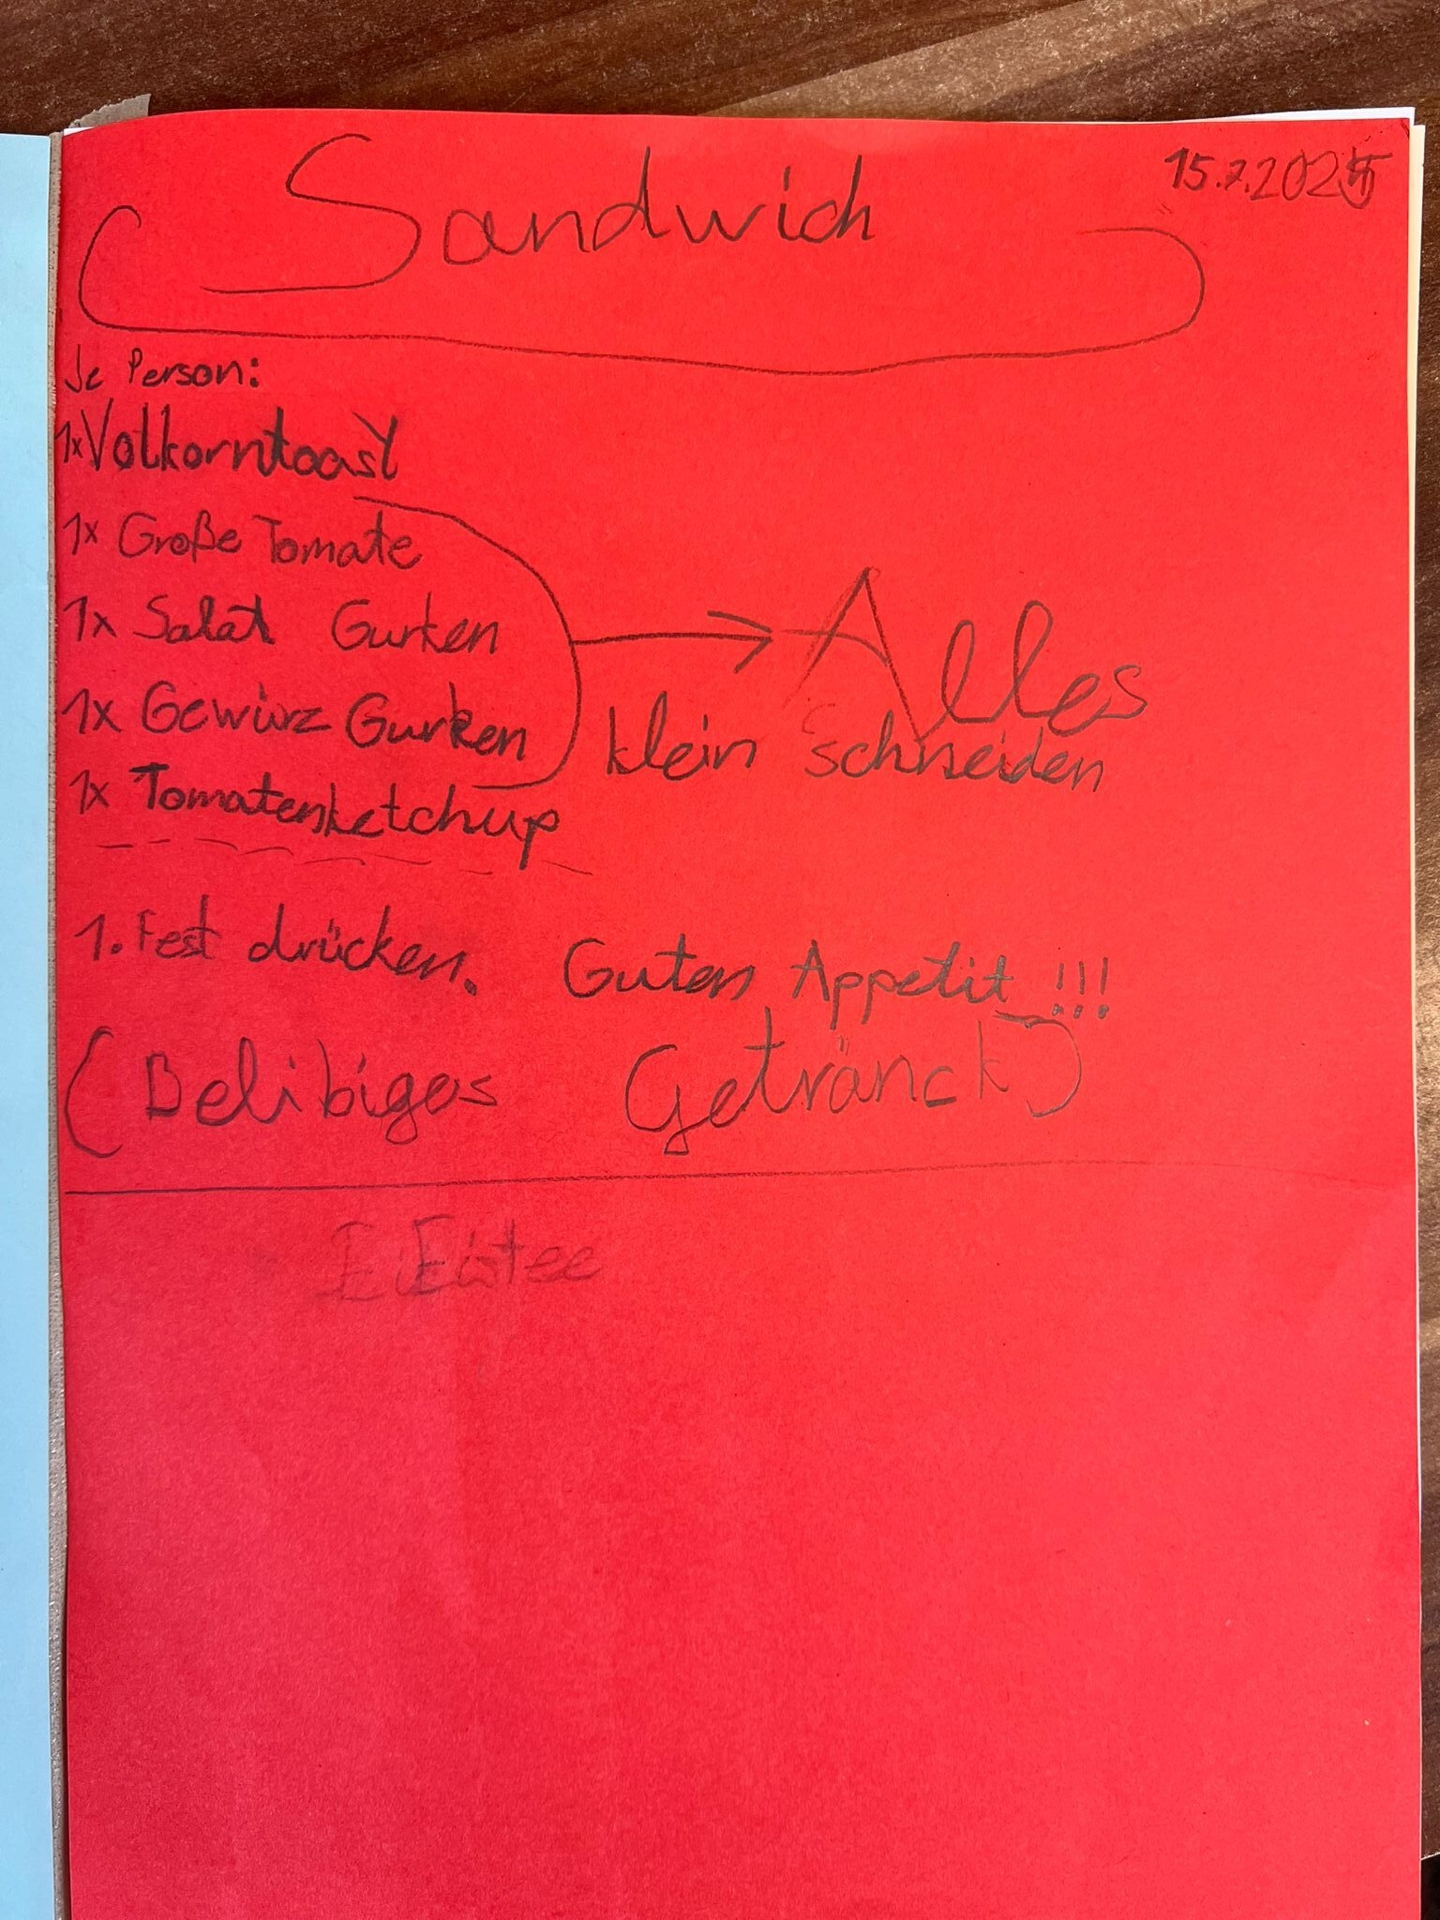 15.7.2025
Sandwich
Je Person:
1x Volkorntoast
1x Große Tomate
1x Salat Gurken
1x Gewürz Gurken
1x Tomatenketchup
Alles
klein schneiden
1. Fest drücken. Guten Appetit !!!
(Belibiges Getränck)